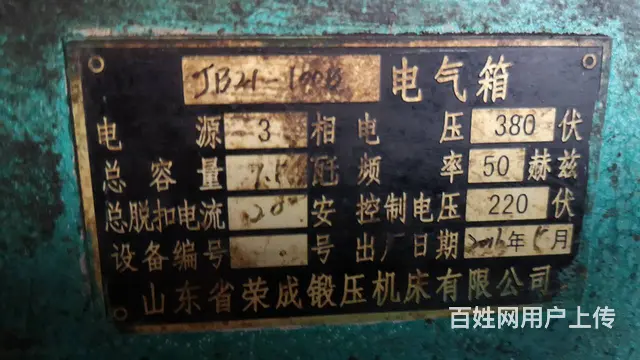 JB21-100B 电气箱
电源 3 相 电压 380 伏
总容量 7.5 瓩 频率 50 赫兹
总脱扣电流 28 安 控制电压 220 伏
设备编号 号 出厂日期 2016年5月
山东省荣成锻压机床有限公司
百姓网用户上传